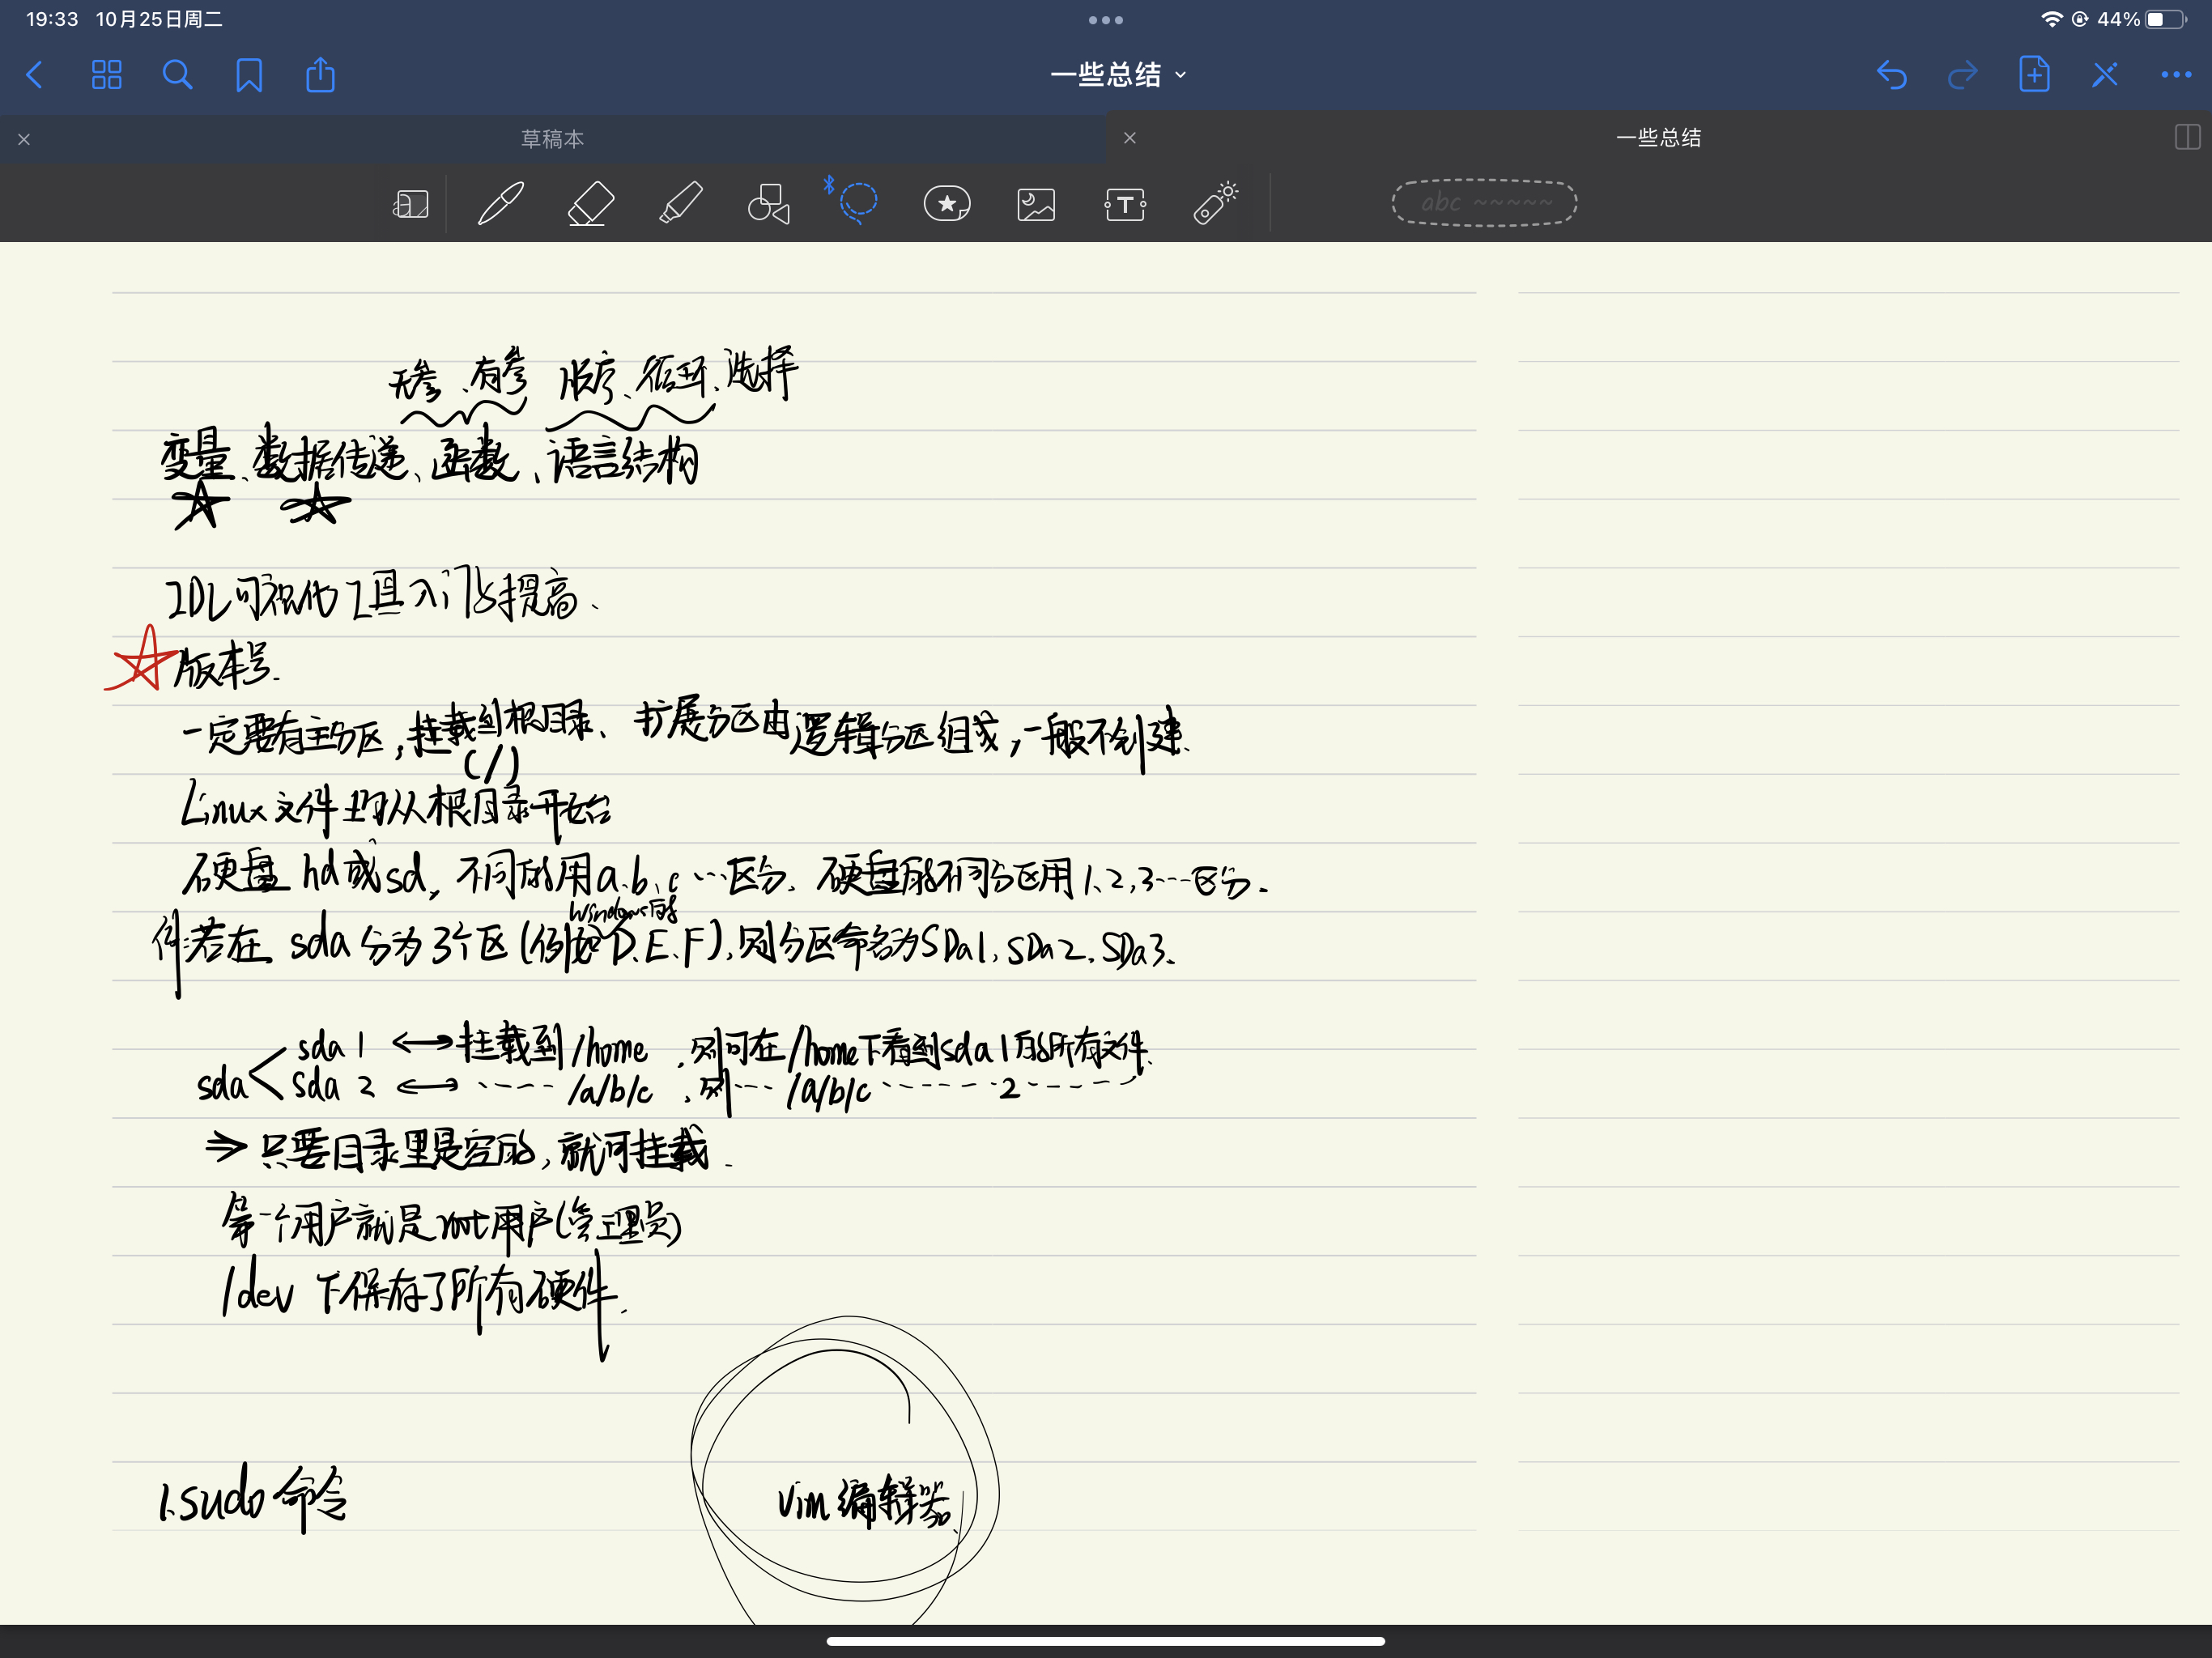 19:33 10月25日周二
44%
一些总结
草稿本
一些总结
abc ~~~~~
无参、有参 顺序、循环、选择
变量、数据传递、函数、语言结构
IDL可视化工具入门与提高、
版本号.
一定要有主分区,挂载到根目录、扩展分区由逻辑分区组成,一般不创建、
(/)
Linux文件均从根目录开始
硬盘 hd或sd, 不同的用a、b、c…区分、硬盘的不同分区用1、2、3…区分.
windows的
若在 sda分为3个区(例如D、E、F),则分区命名为SDa1、SDa2、SDa3.
sda1 ⟷ 挂载到/home ,则可在/home下看到sda1的所有文件、
sda
sda2 ⟷ ------ /a/b/c ,则---- /a/b/c ------- 2 -------
⇒ 只要目录里是空的,就可挂载.
第一个用户就是root用户(管理员)
/dev 下保存了所有硬件.
1.sudo命令
Vim编辑器、